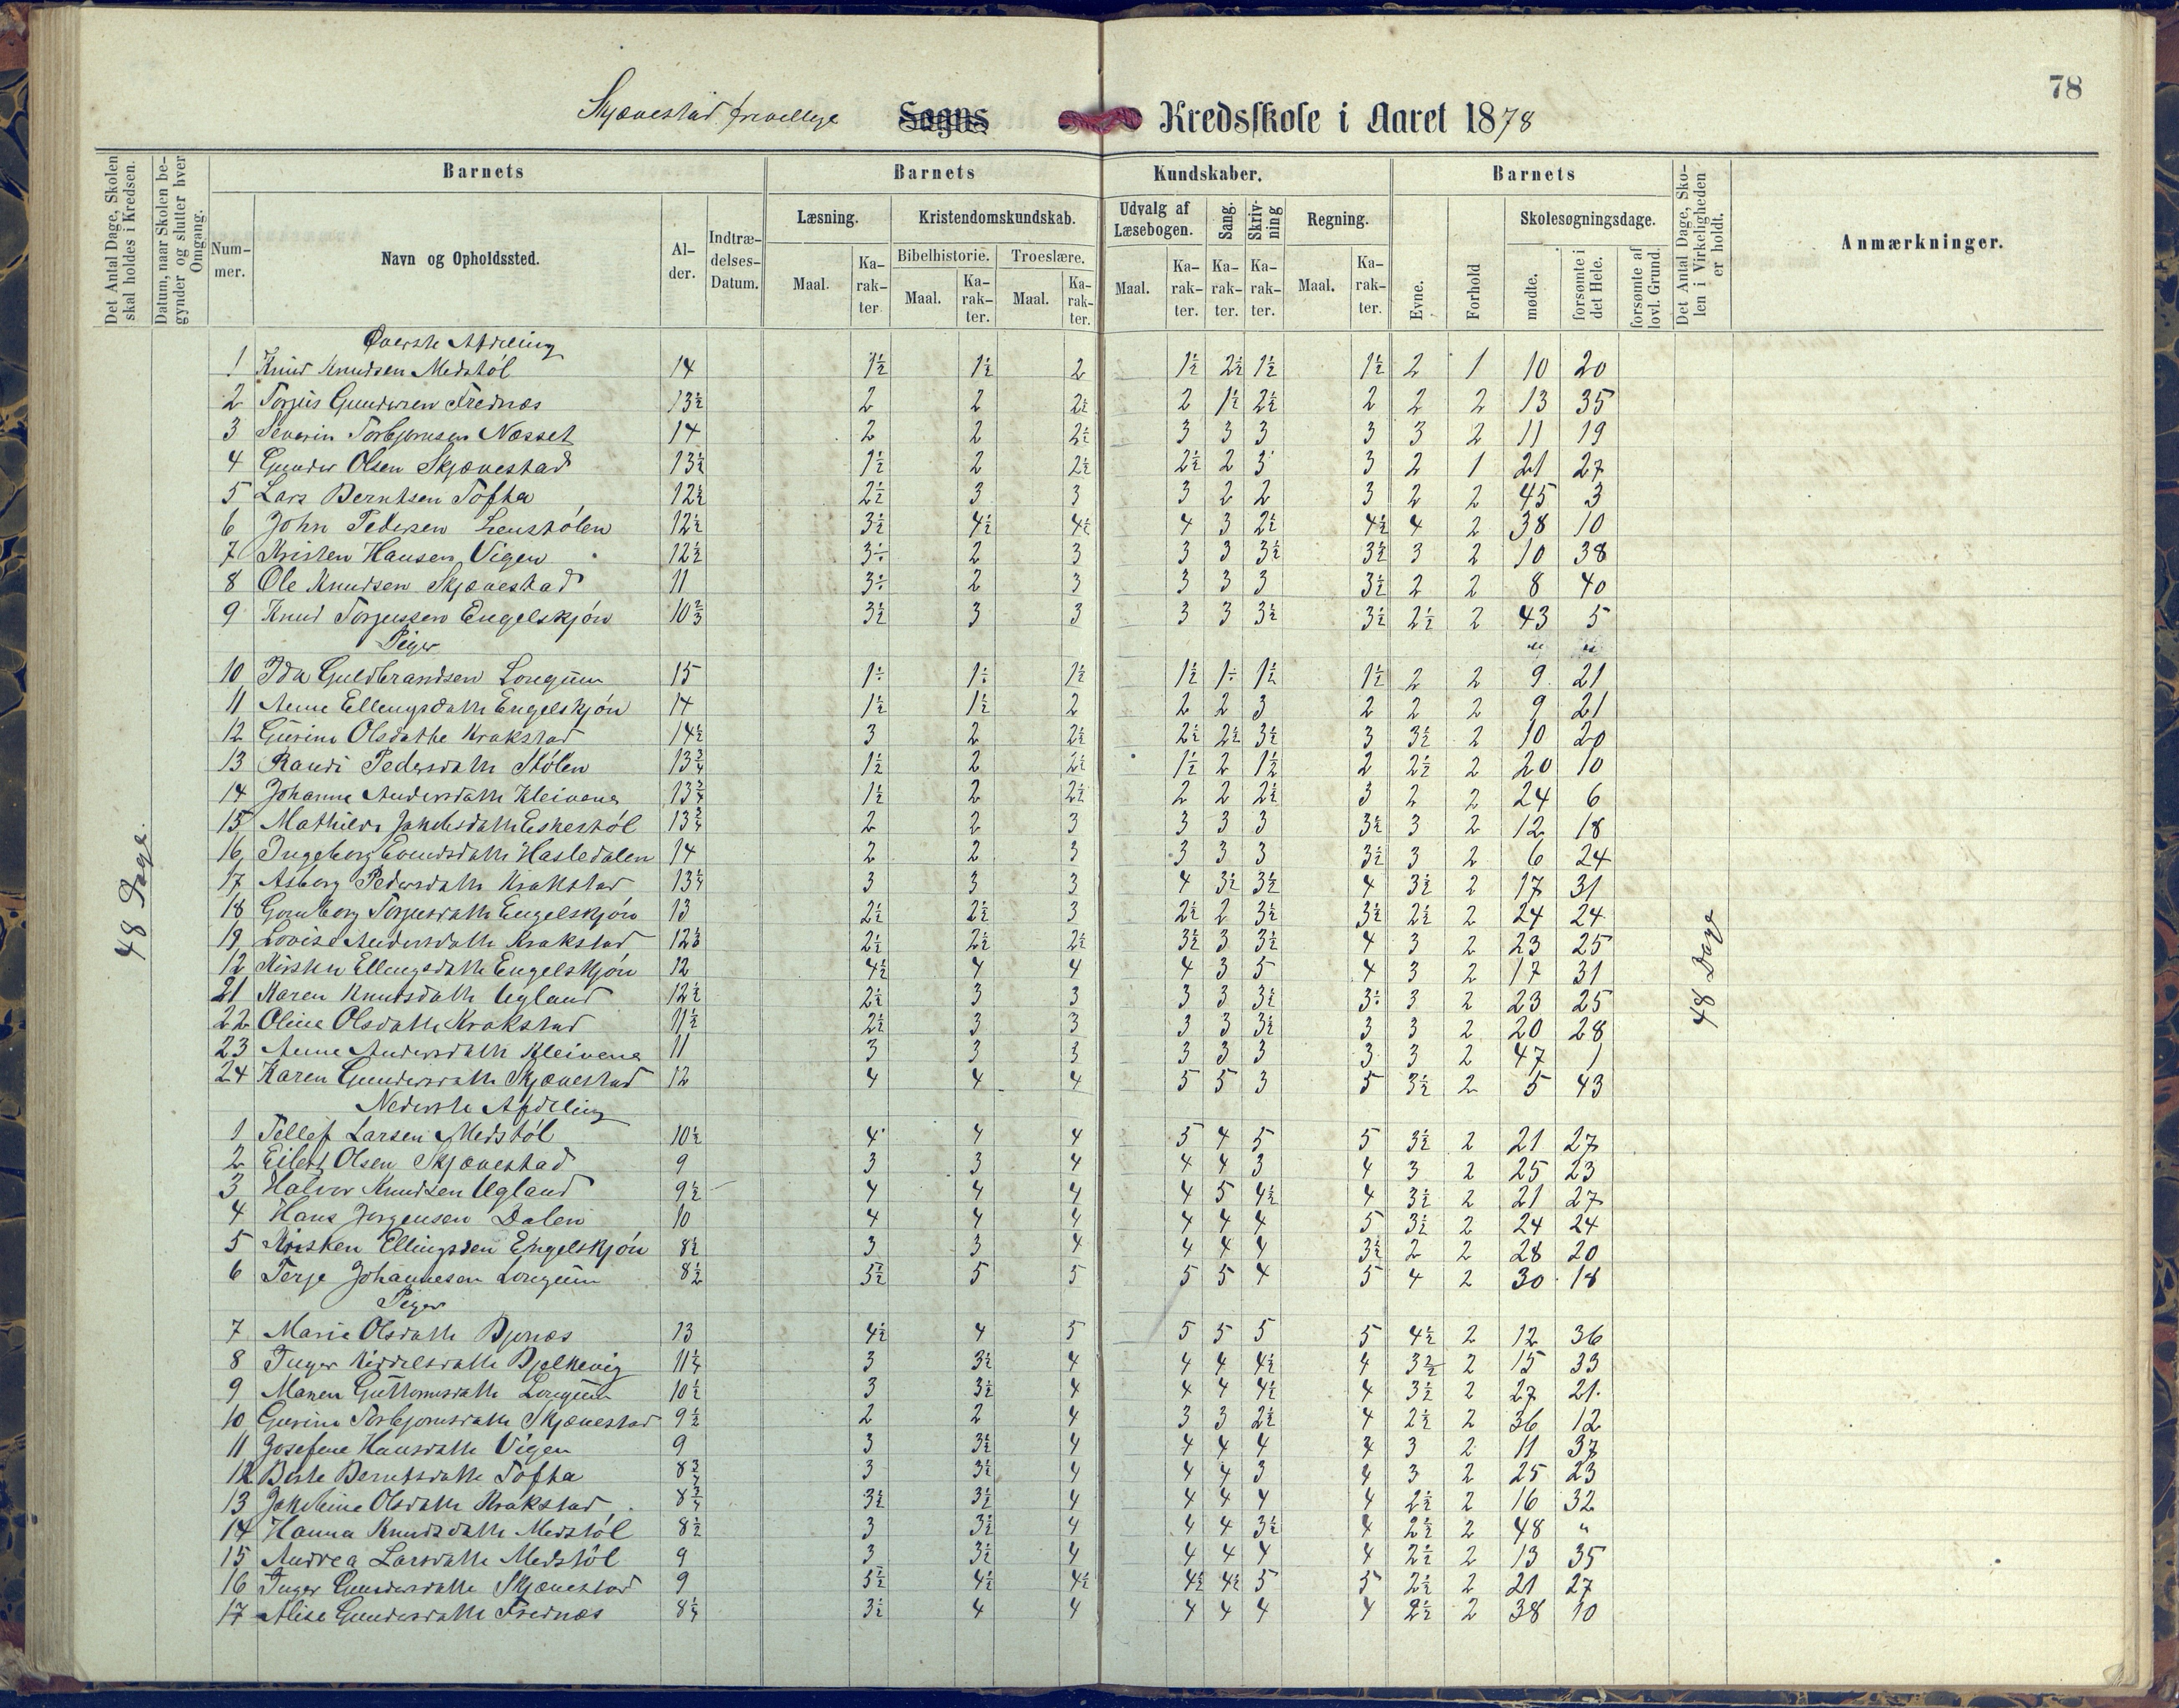 78
Skjævestad frivillige Sogns Kredsskole i Aaret 1878
Det Antal Dage, Skolen skal holdes i Kredsen.
Datum, naar Skolen begynder og slutter hver Omgang.
Barnets
Barnets Kundskaber.
Barnets
Det Antal Dage, Skolen i Virkeligheden er holdt.
Anmærkninger.
Nummer.
Navn og Opholdssted.
Alder.
Indtrædelses-Datum.
Læsning.
Kristendomskundskab.
Udvalg af Læsebogen.
Sang.
Skrivning
Regning.
Evne.
Forhold
Skolesøgningsdage.
Bibelhistorie.
Troeslære.
mødte.
forsømte i det Hele.
forsømte af lovl. Grund.
Maal. Karakter Maal. Karakter. Maal. Karakter. Maal. Karakter. Karakter. Karakter. Maal. Karakter.
48 Dage.
48 Dage
Øverste Afdeling
1 Knud Knudsen Medstøl 14 1½ 1½ 2 1½ 2½ 1½ 1½ 2 1 10 20
2 Torjus Gundersen Frednæs 13½ 2 2 2½ 2 1½ 2½ 2 2 2 13 35
3 Severin Torbjørnsen Næsset 14 2 2 2½ 3 3 3 3 3 2 11 19
4 Gunder Olsen Skjævestad 13½ 1½ 2 2½ 2½ 2 3 3 2 1 21 27
5 Lars Berntsen Tofta 12½ 2½ 3 3 3 2 2 3 2 2 45 3
6 John Pedersen 12½ 3½ 4½ 4½ 4 3 2½ 4½ 4 2 38 10
7 Kristen Hansen Vigen 12½ 3½ 2 3 3 3 3½ 3½ 3 2 10 38
8 Ole Knudsen Skjævestad 11 3½ 2 3 3 3 3 3½ 2 2 8 40
9 Knud Torjussen Engelskjøn 10⅔ 3½ 3 3 3 3 3½ 3½ 2½ 2 43 5
Piger
10 Ida Guldbrandsen Longum 15 1½ 1½ 1½ 1½ 1½ 1½ 1½ 2 2 9 21
11 Anne Ellingsdatte Engelskjøn 14 1½ 1½ 2 2 2 3 2 2 2 9 21
12 Gurine Olsdatte Krakstad 14½ 3 2 2½ 2½ 2½ 3½ 3 3½ 2 10 20
13 Randi Pedersdatte Stølen 13¾ 1½ 2 2½ 1½ 2 1½ 2 2½ 2 20 10
14 Johanne Andersdatte Kleivene 13¾ 1½ 2 2½ 2 2 2½ 3 2 2 24 6
15 Mathilde Jakobsdatte Eskestøl 13¾ 2 2 3 3 3 3 3½ 3 2 12 18
16 Ingeborg Evendsdatte Hasledalen 14 2 2 3 3 3 3 3½ 3 2 6 24
17 Asborg Pedersdatte Krakstad 13¼ 3 3 3 4 3½ 3½ 4 3½ 2 17 31
18 Gomborg Torjusdatte Engelskjøn 13 2½ 2½ 3 2½ 2 3½ 3½ 2½ 2 24 24
19 Lovise Andersdatte Krakstad 12⅓ 2½ 2½ 2½ 3½ 3 3½ 4 3 2 23 25
12 Kirsten Ellingsdatte Engelskjøn 12 4½ 4 4 4 3 5 4 3 2 17 31
21 Karen Knutsdatte Ugland 12½ 2½ 3 3 3 3 3½ 3½ 3 2 23 25
22 Oline Olsdatte Krakstad 11½ 2½ 3 3 3 3 3½ 3 3 2 20 28
23 Anne Andersdatte Kleivene 11 3 3 3 3 3 3 3 3 2 47 1
24 Karen Gundersdatte Skjævestad 12 4 4 4 5 5 3 5 3½ 2 5 43
Nederste Afdeling
1 Tellef Larsen Medstøl 10½ 4 4 4 5 4 5 5 3½ 2 21 27
2 Eilert Olsen Skjævestad 9 3 3 4 4 4 3 4 3 2 25 23
3 Halvor Knudsen Ugland 9½ 4 4 4 4 5 4½ 4 3½ 2 21 27
4 Hans Jørgensen Dalen 10 4 4 4 4 4 4 5 3½ 2 24 24
5 Kristen Ellingsen Engelskjøn 8½ 3 3 4 4 4 4 3½ 2 2 28 20
6 Terje Johannesen Longum 8½ 5½ 5 5 5 5 4 5 4 2 30 18
Piger
7 Marie Olsdatte Bjønæs 13 4½ 4 5 5 5 5 5 4½ 2 12 36
8 Inger Kiddelsdatte Bjelkevig 11¼ 3 3½ 4 4 4 4½ 4 3½ 2 15 33
9 Maren Guttormsdatte Longum 10½ 3 3½ 4 4 4 4½ 4 3½ 2 27 21
10 Gurine Torbjørnsdatte Skjævestad 9½ 2 2 4 3 3 2½ 4 2½ 2 36 12
11 Josefene Hansdatte Vigen 9 3 3½ 4 4 4 4 4 3 2 11 37
12 Berte Berntsdatte Tofta 8¾ 3 3½ 4 4 4 3 4 3 2 25 23
13 Jakobine Olsdatte Krakstad 8¾ 3½ 3½ 4 4 4 4 4 2½ 2 16 32
14 Hanna Knudsdatte Medstøl 8½ 3 3½ 4 4 4 3½ 4 2½ 2 48 "
15 Andrea Larsdatte Medstøl 9 3 3½ 4 4 4 4 4 2½ 2 13 35
16 Inger Gundersdatte Skjævestad 9 5½ 4½ 4½ 4½ 4½ 5 5 2½ 2 21 27
17 Alise Gundersdatte Frednæs 8¼ 3½ 4 4 4 4 4 4 2½ 2 38 10